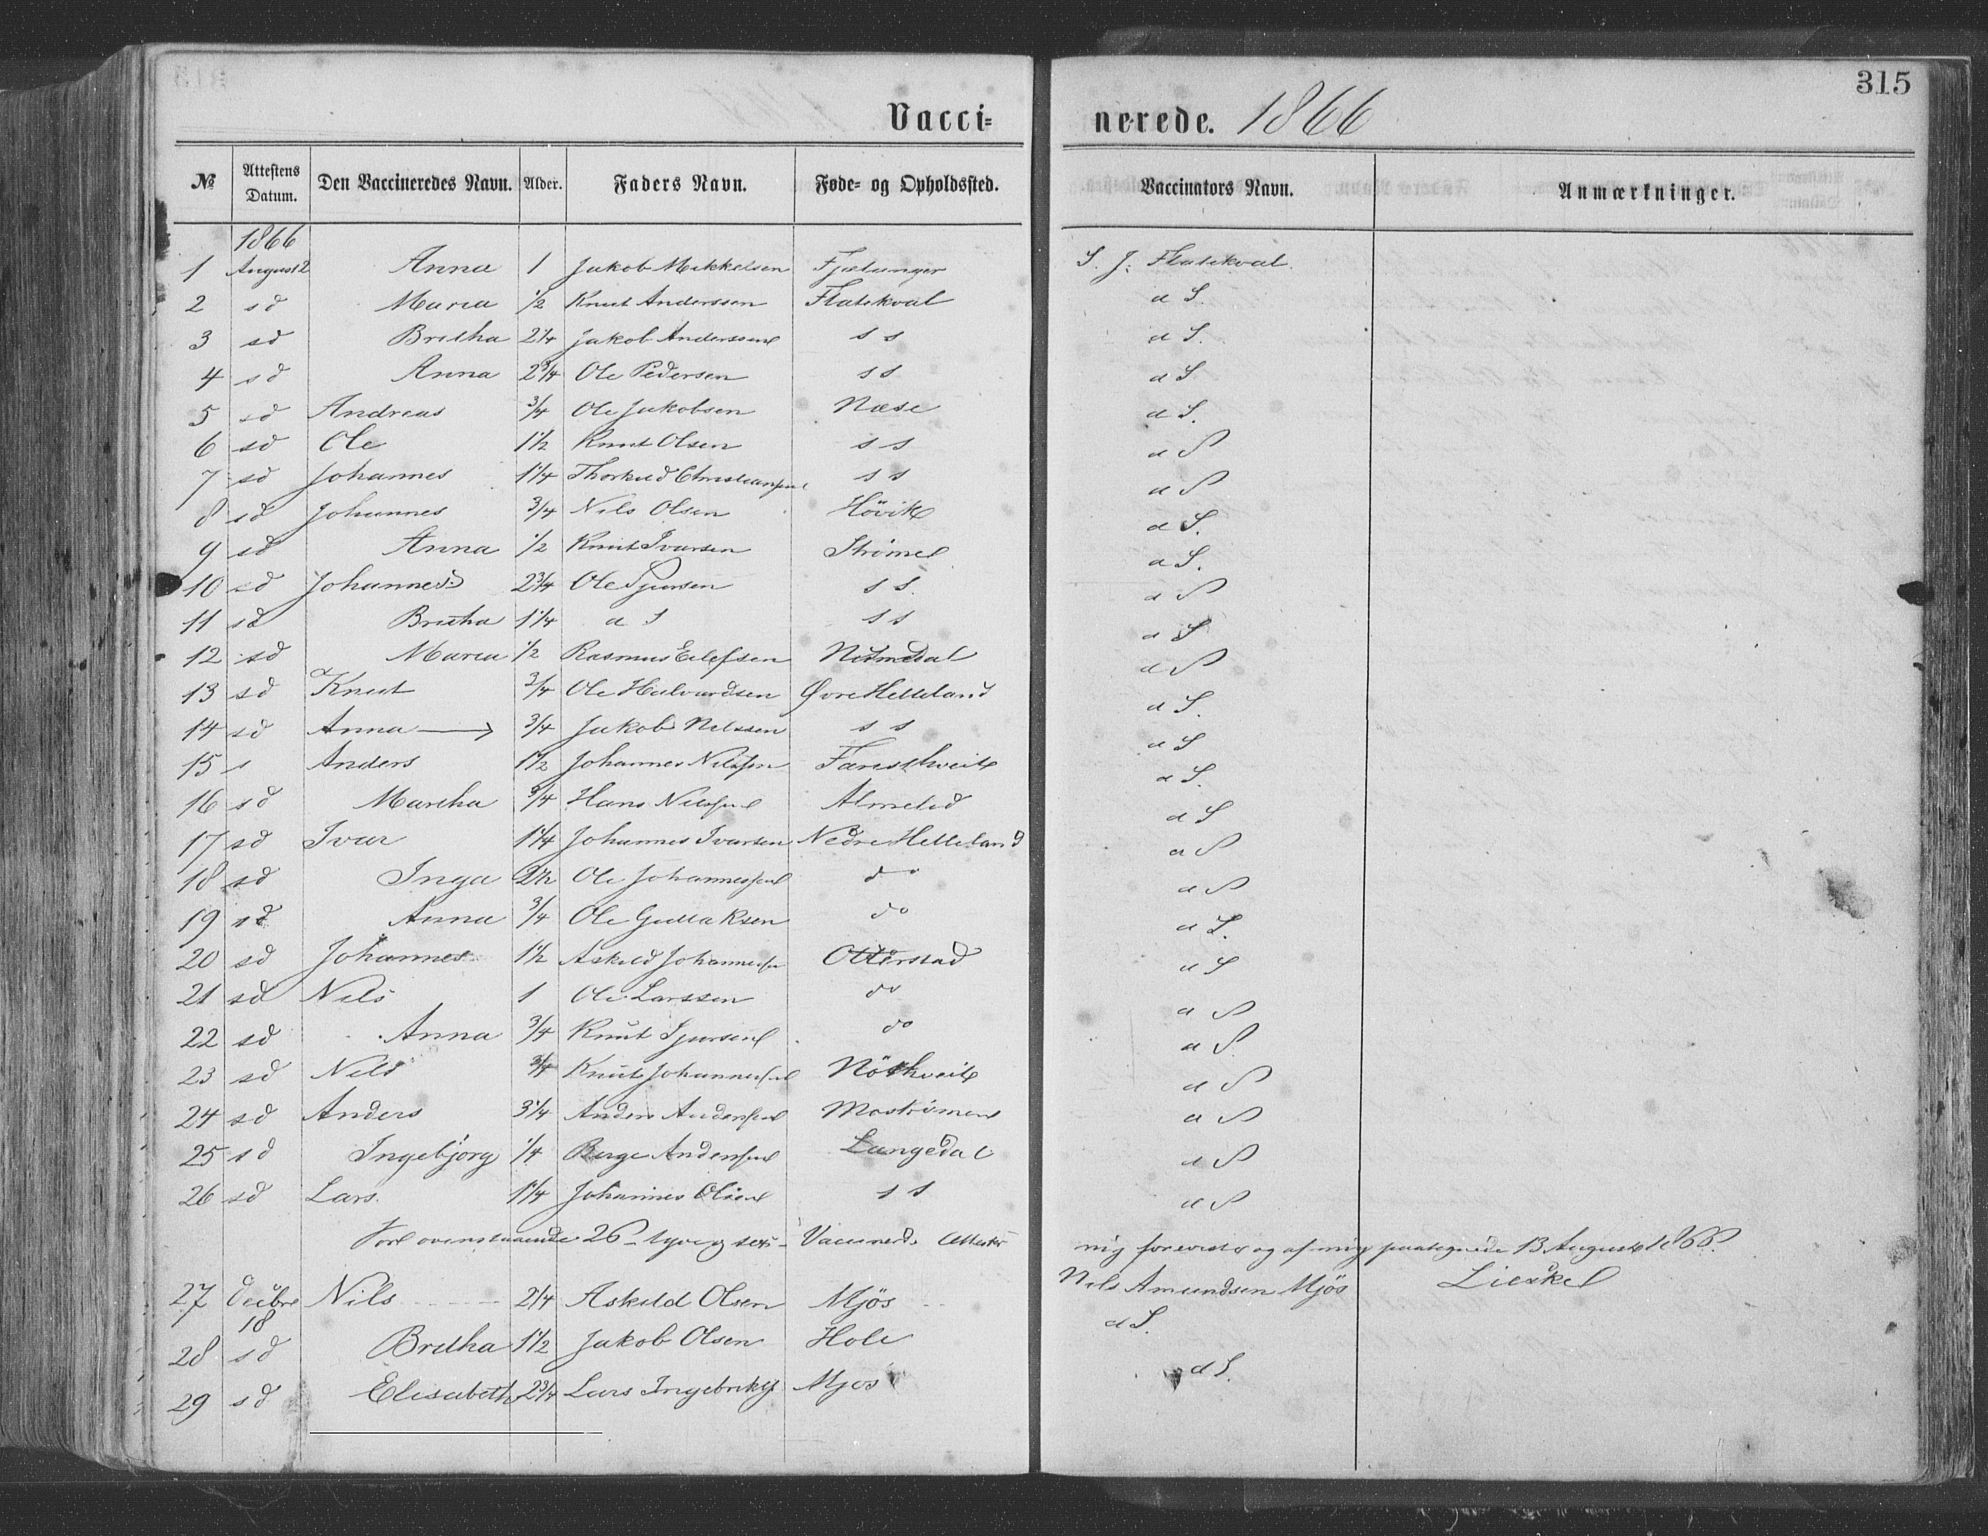 315
Vacci= nerede. 1866
No Attestens Datum. Den Vaccineredes Navn. Alder. Faders Navn. Føde- og Opholdssted. Vaccinators Navn. Anmærkninger.
1866
1 August 2 Anna 1 Jakob Mikkelsen Fjelanger S. J. Flatekval
2 sd Maria 1/2 Knut Anderssen Flatekval d S.
3 sd Bretha 2 1/4 Jakob Anderssen s s d S.
4 sd Anna 2 3/4 Ole Pedersen s s d S
5 sd Andreas 3/4 Ole Jakobsen Næse d S.
6 sd Ole 1 1/2 Knut Olsen s s d S
7 sd Johannes 1 1/4 Thorkild Christiansen s s d S
8 sd Johannes 3/4 Nils Olsen Hövik d S.
9 sd Anna 1/2 Knut Ivarsen Strömel d S.
10 sd Johannes 2 3/4 Ole Sjursen s s. d S
11 sd Bretha 1 1/4 d s s s d S
12 sd Maria 1/2 Rasmus Eilefsen d S
13 sd Knut 3/4 Ole Halvardsen Øvre Helleland d S.
14 sd Anna 3/4 Jakob Nilssen s s d S
15 s Anders 1 1/2 Johannes Nilssen Færesthveit d S.
16 sd Martha 3/4 Hans Nilssen Almelid d S
17 sd Ivar 1 1/4 Johannes Ivarsen Nedre Helleland d S
18 sd Inga 2 1/2 Ole Johannessen do d S
19 sd Anna 3/4 Ole Gullaksen do d S.
20 sd Johannes 1 1/2 Askild Johannessen Otterstad d S
21 sd Nils 1 Ole Larssen do d S
22 sd Anna 3/4 Knut Sjursen do d S.
23 sd Nils 3/4 Knut Johannessen Nöthveit d S
24 sd Anders 3 1/4 Anders Anderssen Mostrømen d S
25 sd Ingebjörg 1/4 Berge Anderssen Langedal d S
26 sd Lars 1 1/4 Johannes Olsen s s d S
ovenstaaende 26 - tyve og sex - Vaccinerede mig foreviste og af mig paategnede 13 August 1866.
27 Decbre 18 Nils 2 1/4 Askild Olsen Mjös Nils Amundsen Mjös
28 sd Bretha 1 1/2 Jakob Olsen Hole d S.
29 sd Elisabeth 2 3/4 Lars Mjös d S.